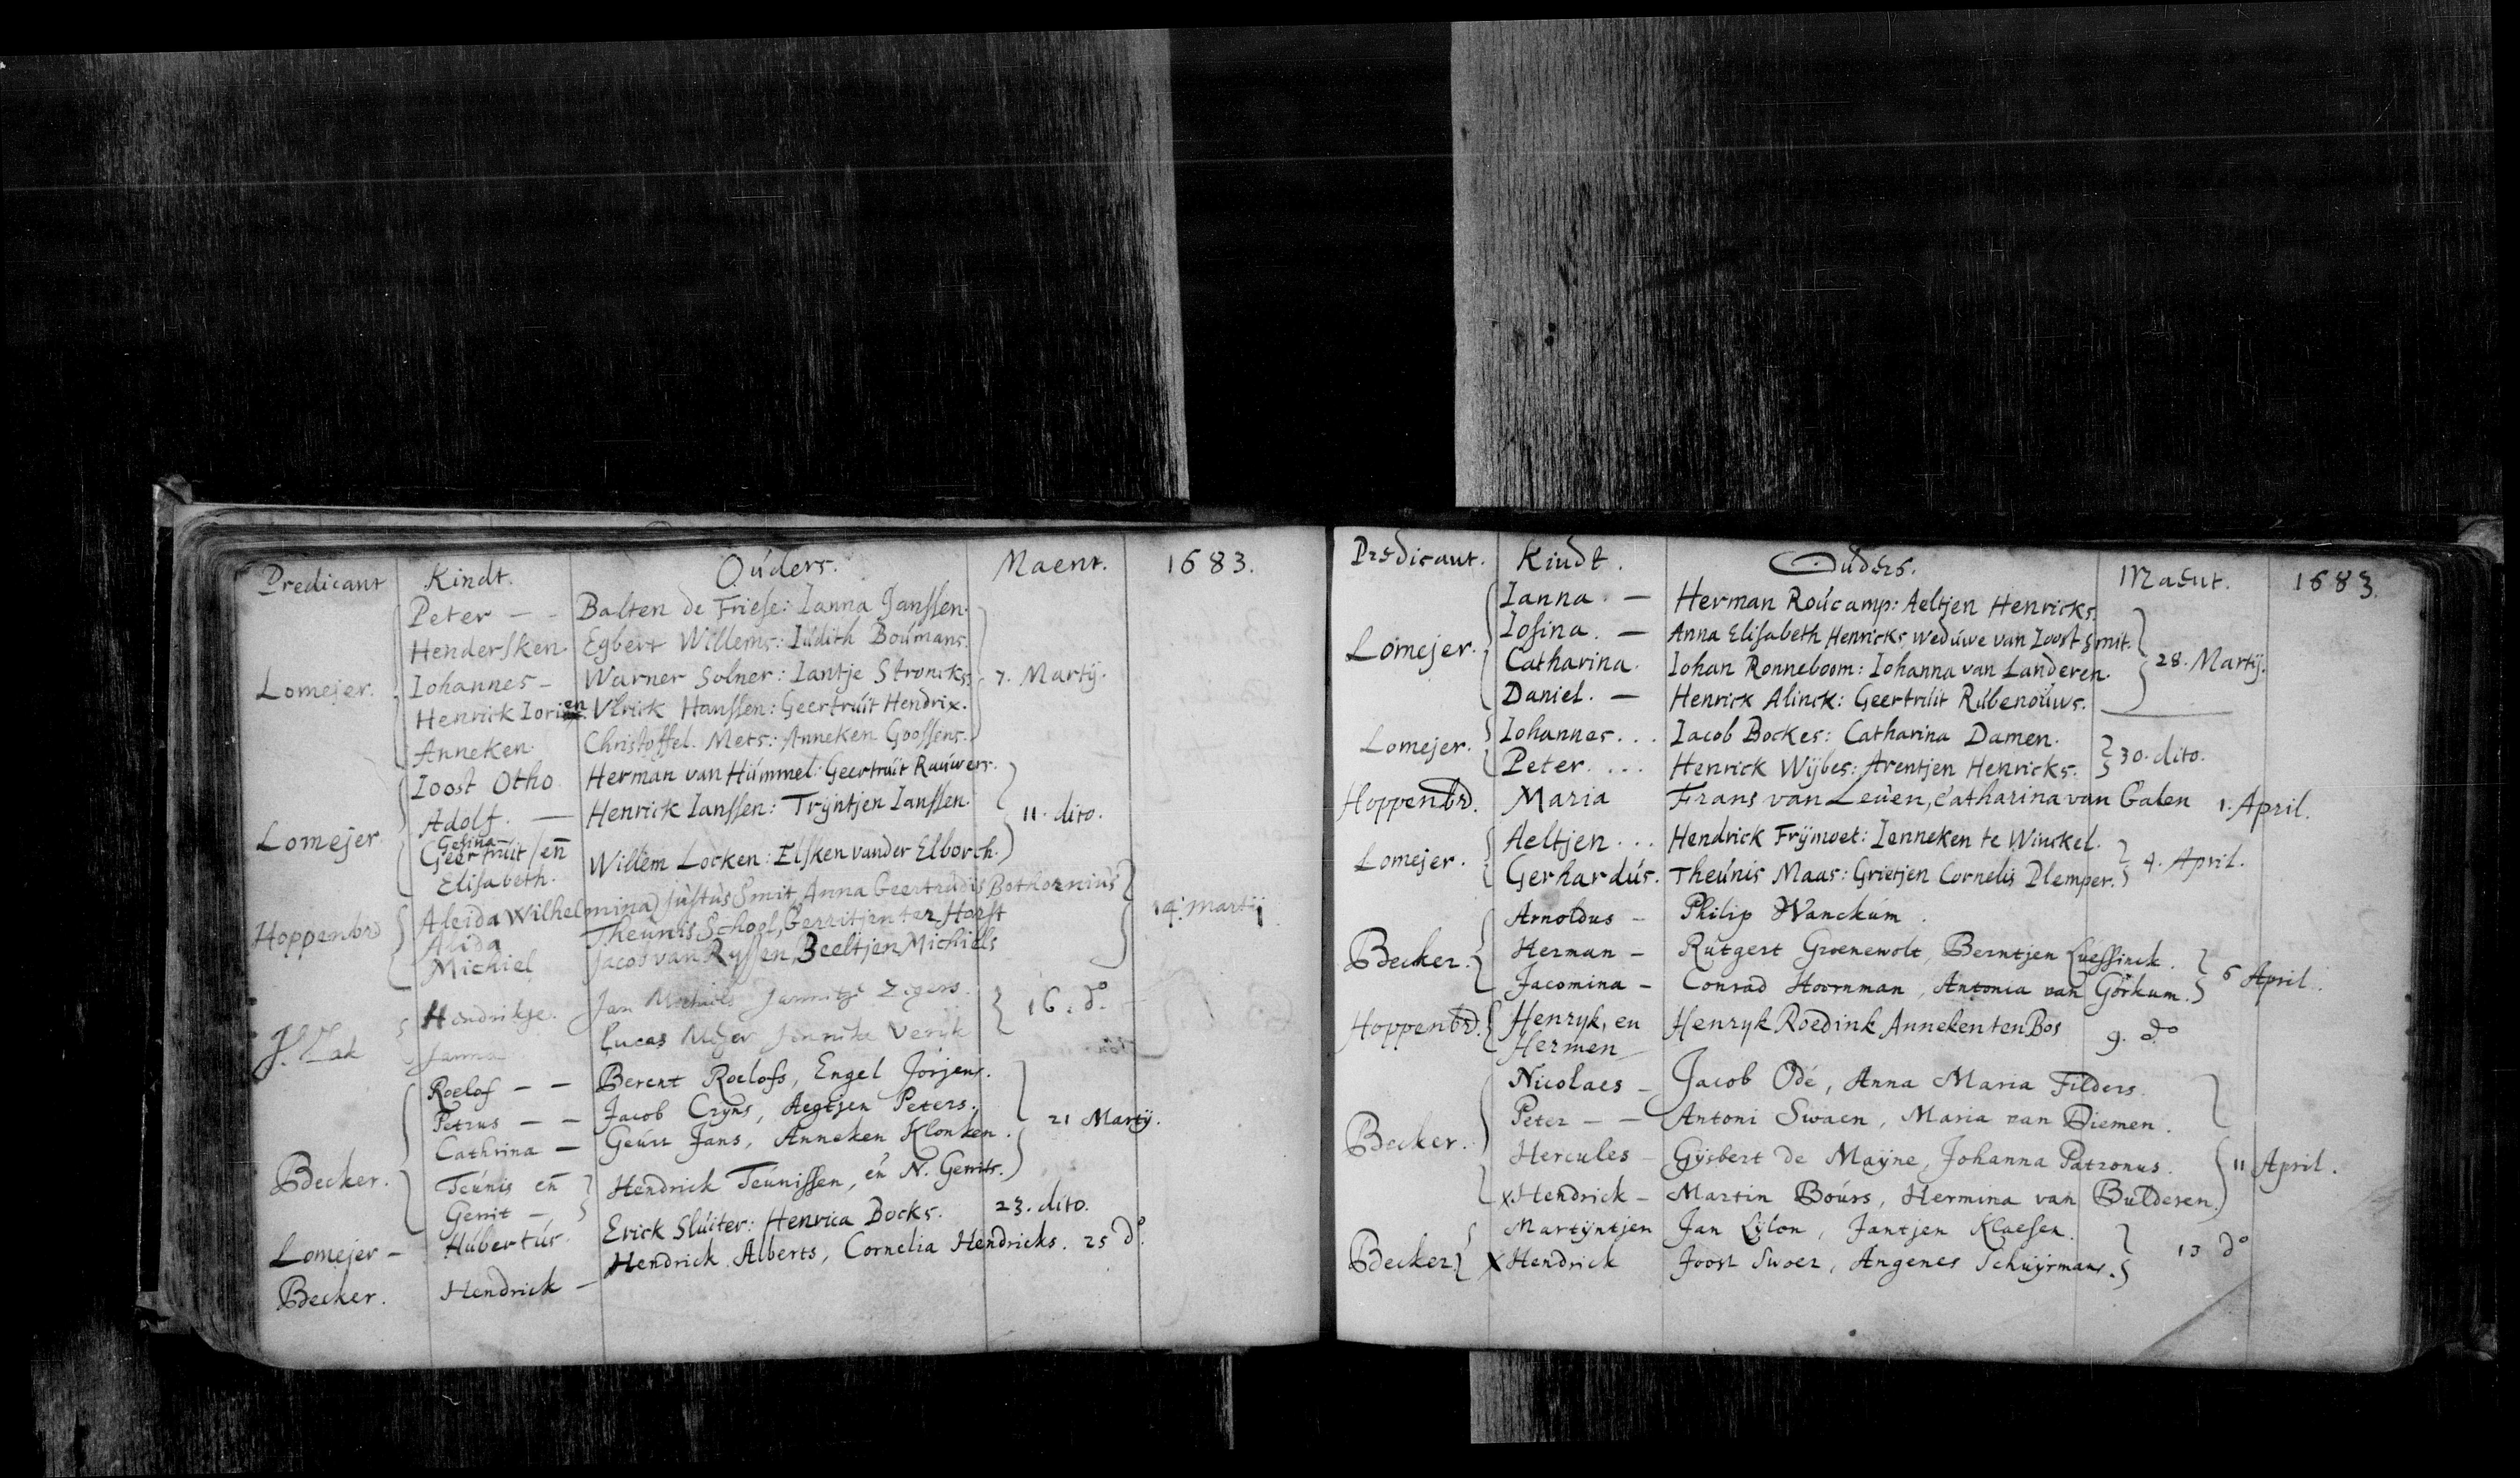 Predicant Kindt. Oúders. Maent. 1683.
Peter — - Balten de Friese: Ianna Janssen.
Hendersken. Egbert Willems: Iúdith Boúmans.
Lomejer. Iohannes - Warner Solner: Iantje Stroncks. 7. Martij.
Henrick Iorien. Vlrick Hanssen: Geertrúit Hendrix.
Anneken. Christoffel Mets: Anneken Goossens.
Ioost Otho Herman van Húmmel: Geertrúit Raúwers.
Adolf. — Henrick Ianssen: Trijntjen Ianssen.
Lomejer 11. dito.
Gesina
Geertrúit / en̄
Elisabeth. Willem Locken: Elsken vander Elborch.
Aleida Wilhelmina) Jústús Smit, Anna Geertrudis Bothornius
Hoppenbrd Alida Theúnis School, Gerritjen ter Horst 14 Martij
Michiel Jacob van Ryssen, Beeltjen Michiels
Hendrikje. Jan Michiels Jannitje Zegers.
16. do.
Janna Lucas Meijer
Roelof — — Berent Roelofs, Engel Jorjens.
Petrus — — Jacob Crijns, Aegtjen Peters.
Cathrina — Geúrt Jans, Anneken Klonken. 21 Martij.
Becker. Teúnis en̄
Gerrit — Hendrick Teúnissen, en̄ N. Gerrits.
Lomejer - Húbertús. Erick Slúiter: Henrica Bocks. 23. dito.
Becker. Hendrick - Hendrick Alberts, Cornelia Hendricks. 25 do.
Predicant. Kindt. Ouders. Maent. 1683.
Ianna. — Herman Roúcamp: Aeltjen Henricks.
Iosina. — Anna Elisabeth Henricks wedúwe van Ioost Smit.
Lomejer. Catharina. Iohan Ronneboom: Iohanna van Landeren. 28. Martij.
Daniel. — Henrick Alinck: Geertrúit Rúbenoúws.
Lomejer. Iohannes... Iacob Bockes: Catharina Damen.
Peter.... Henrick Wijbes: Arentjen Henricks. 30. dito.
Hoppenbrd. Maria Frans van Leúen, Catharina van Galen 1. April.
Lomejer. Aeltjen... Hendrick Frijmoet: Ianneken te Winckel.
Gerhardús. Theúnis Maas: Grietjen Cornelis Plemper. 4. April.
Arnoldus - Philip Wanckúm.
Becker. Herman - Rutgert Groenewolt, Berntjen Luessinck.
Jacomina - Conrad Hoornman, Antonia van Gorkum. 6 April.
Hoppenbrd. Henryk, en Henryk Roedink Anneken ten Bos
Hermen 9. do
Nicolaes - Jacob Odé, Anna Maria Filders.
Peter — — Antoni Swaen, Maria van Diemen.
Becker. Hercules - Gijsbert de Maÿne, Johanna Patronus. 11 April.
x Hendrick - Martin Boúrs, Hermina van Bulderen.
Martijntjen Jan Lijlon, Jantjen Klaesen.
Becker x Hendrick Joost Swoer, Angenes Schuijrmans. 13 do